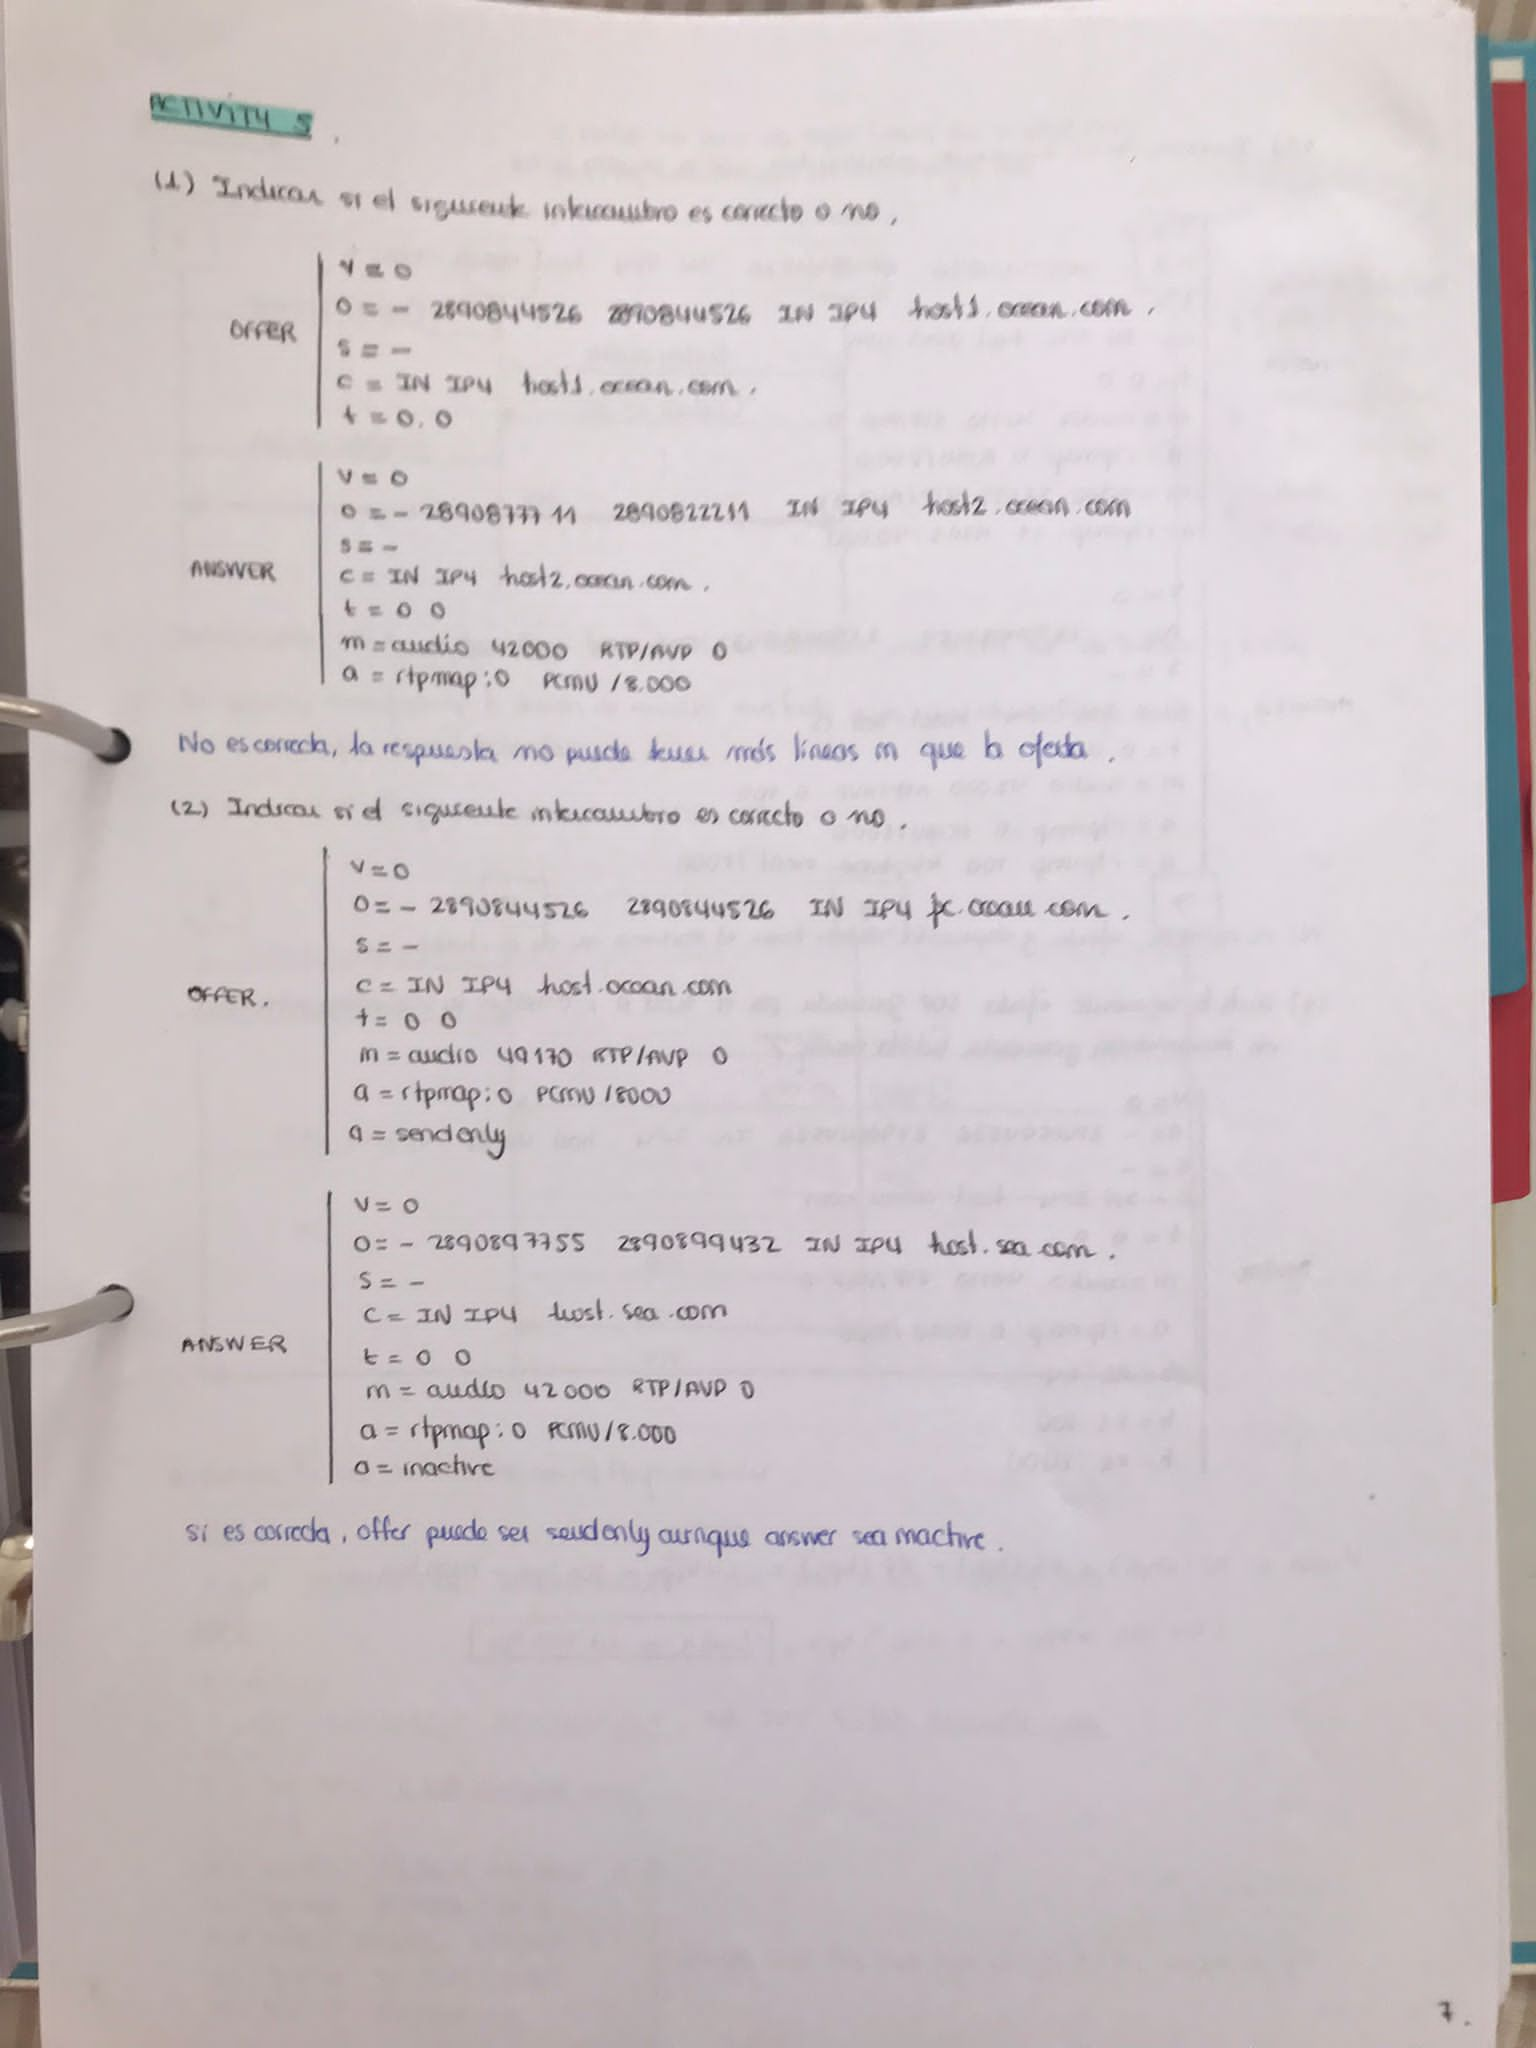 ACTIVITY 5
(1) Indicar si el siguiente intercambio es correcto o no.
v = 0
o = - 2890844526 2890844526 IN IP4 host1.ocean.com.
OFFER
s = -
c = IN IP4 host1.ocean.com.
t = 0.0
v = 0
o = - 2890877711 2890822211 IN IP4 host2.ocean.com
s = -
ANSWER
c = IN IP4 host2.ocean.com.
t = 0 0
m = audio 42000 RTP/AVP 0
a = rtpmap:0 PCMU/8.000
No es correcta, la respuesta no puede tener más líneas m que la oferta.
(2) Indicar si el siguiente intercambio es correcto o no.
v = 0
o = - 2890844526 2890844526 IN IP4 pc.ocean.com.
s = -
OFFER.
c = IN IP4 host.ocean.com
t = 0 0
m = audio 49170 RTP/AVP 0
a = rtpmap:0 PCMU/8000
a = sendonly
v = 0
o = - 2890897755 2890899432 IN IP4 host.sea.com.
s = -
c = IN IP4 host.sea.com
ANSWER
t = 0 0
m = audio 42000 RTP/AVP 0
a = rtpmap:0 PCMU/8.000
a = inactive
si es correcta, offer puede ser sendonly aunque answer sea inactive.
7.